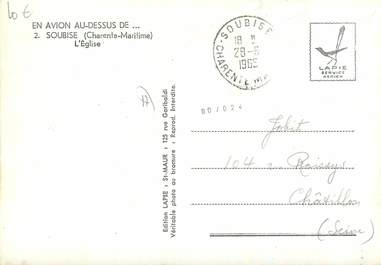 10 €
EN AVION AU-DESSUS DE ...
2. SOUBISE (Charente-Maritime)
L'Église
SOUBISE
18 H
28-6
1965
CHARENTE Mme
LAPIE
SERVICE
AERIEN
Edition LAPIE : St-MAUR : 125 rue Garibaldi
Véritable photo au bromure : Reprod. Interdite.
Jobit
104
Châtillon
(Seine)